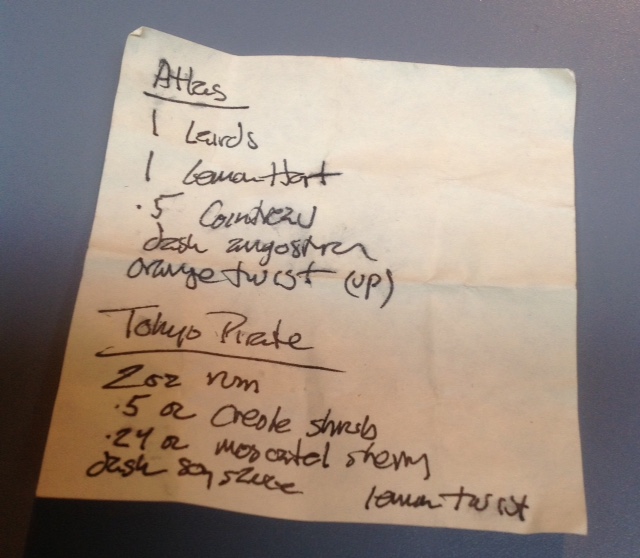 Atlas
1 Lairds
1 Lemon Hart
.5 Cointreau
dash angostura
orange twist (up)
Tokyo Pirate
2 oz rum
.5 oz Creole shrub
.24 oz moscatel sherry
dash soy sauce
lemon twist